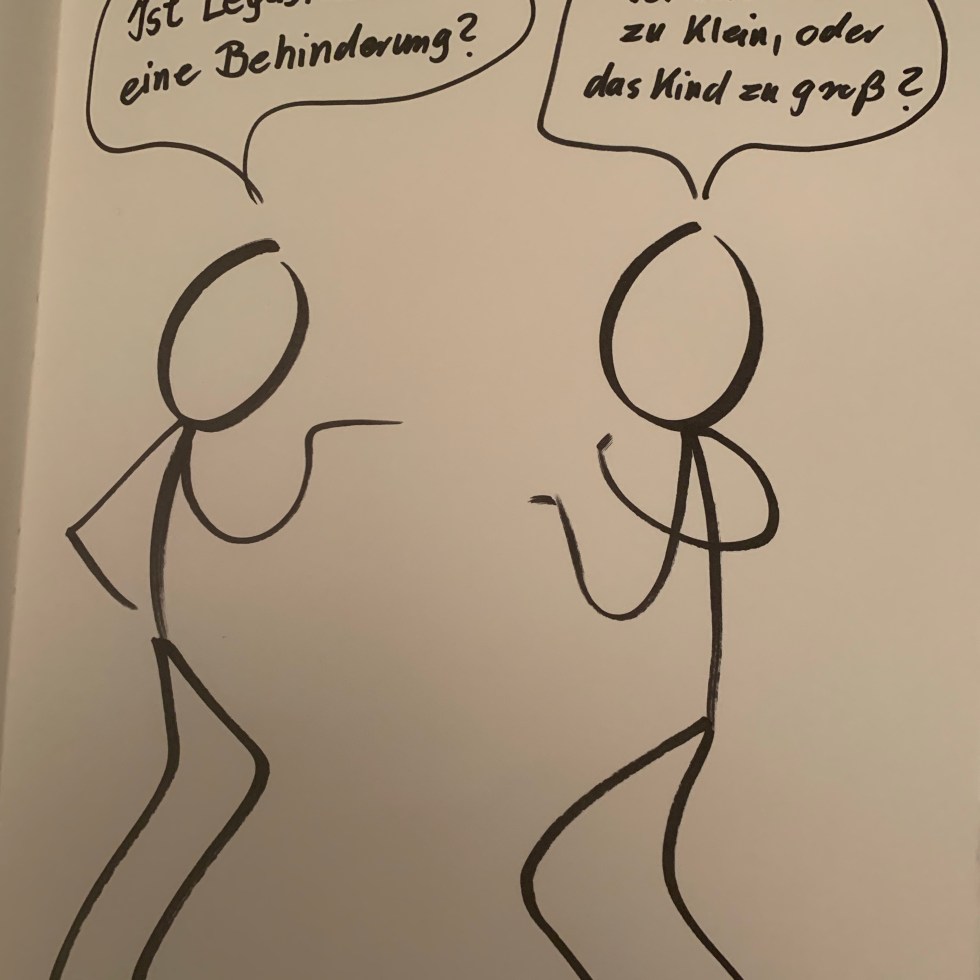 Ist
eine Behinderung?
zu Klein, oder
das Kind zu groß?